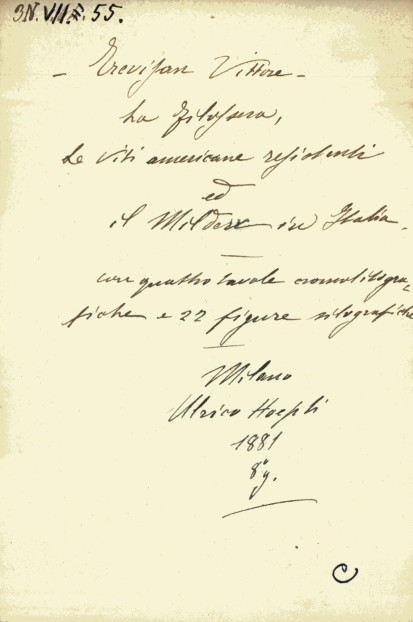 3N.VII.F.55.
- Trevisan Vittore -
La Filossera,
Le viti americane resistenti
ed
il Mildew in Italia.
con quattro tavole cromolitogra-
fiche e 22 figure silografiche
Milano
Ulrico Hoepli
1881
8° g.
C